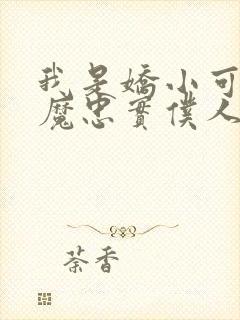 我是嬌小可
魔忠實僕人
荼香